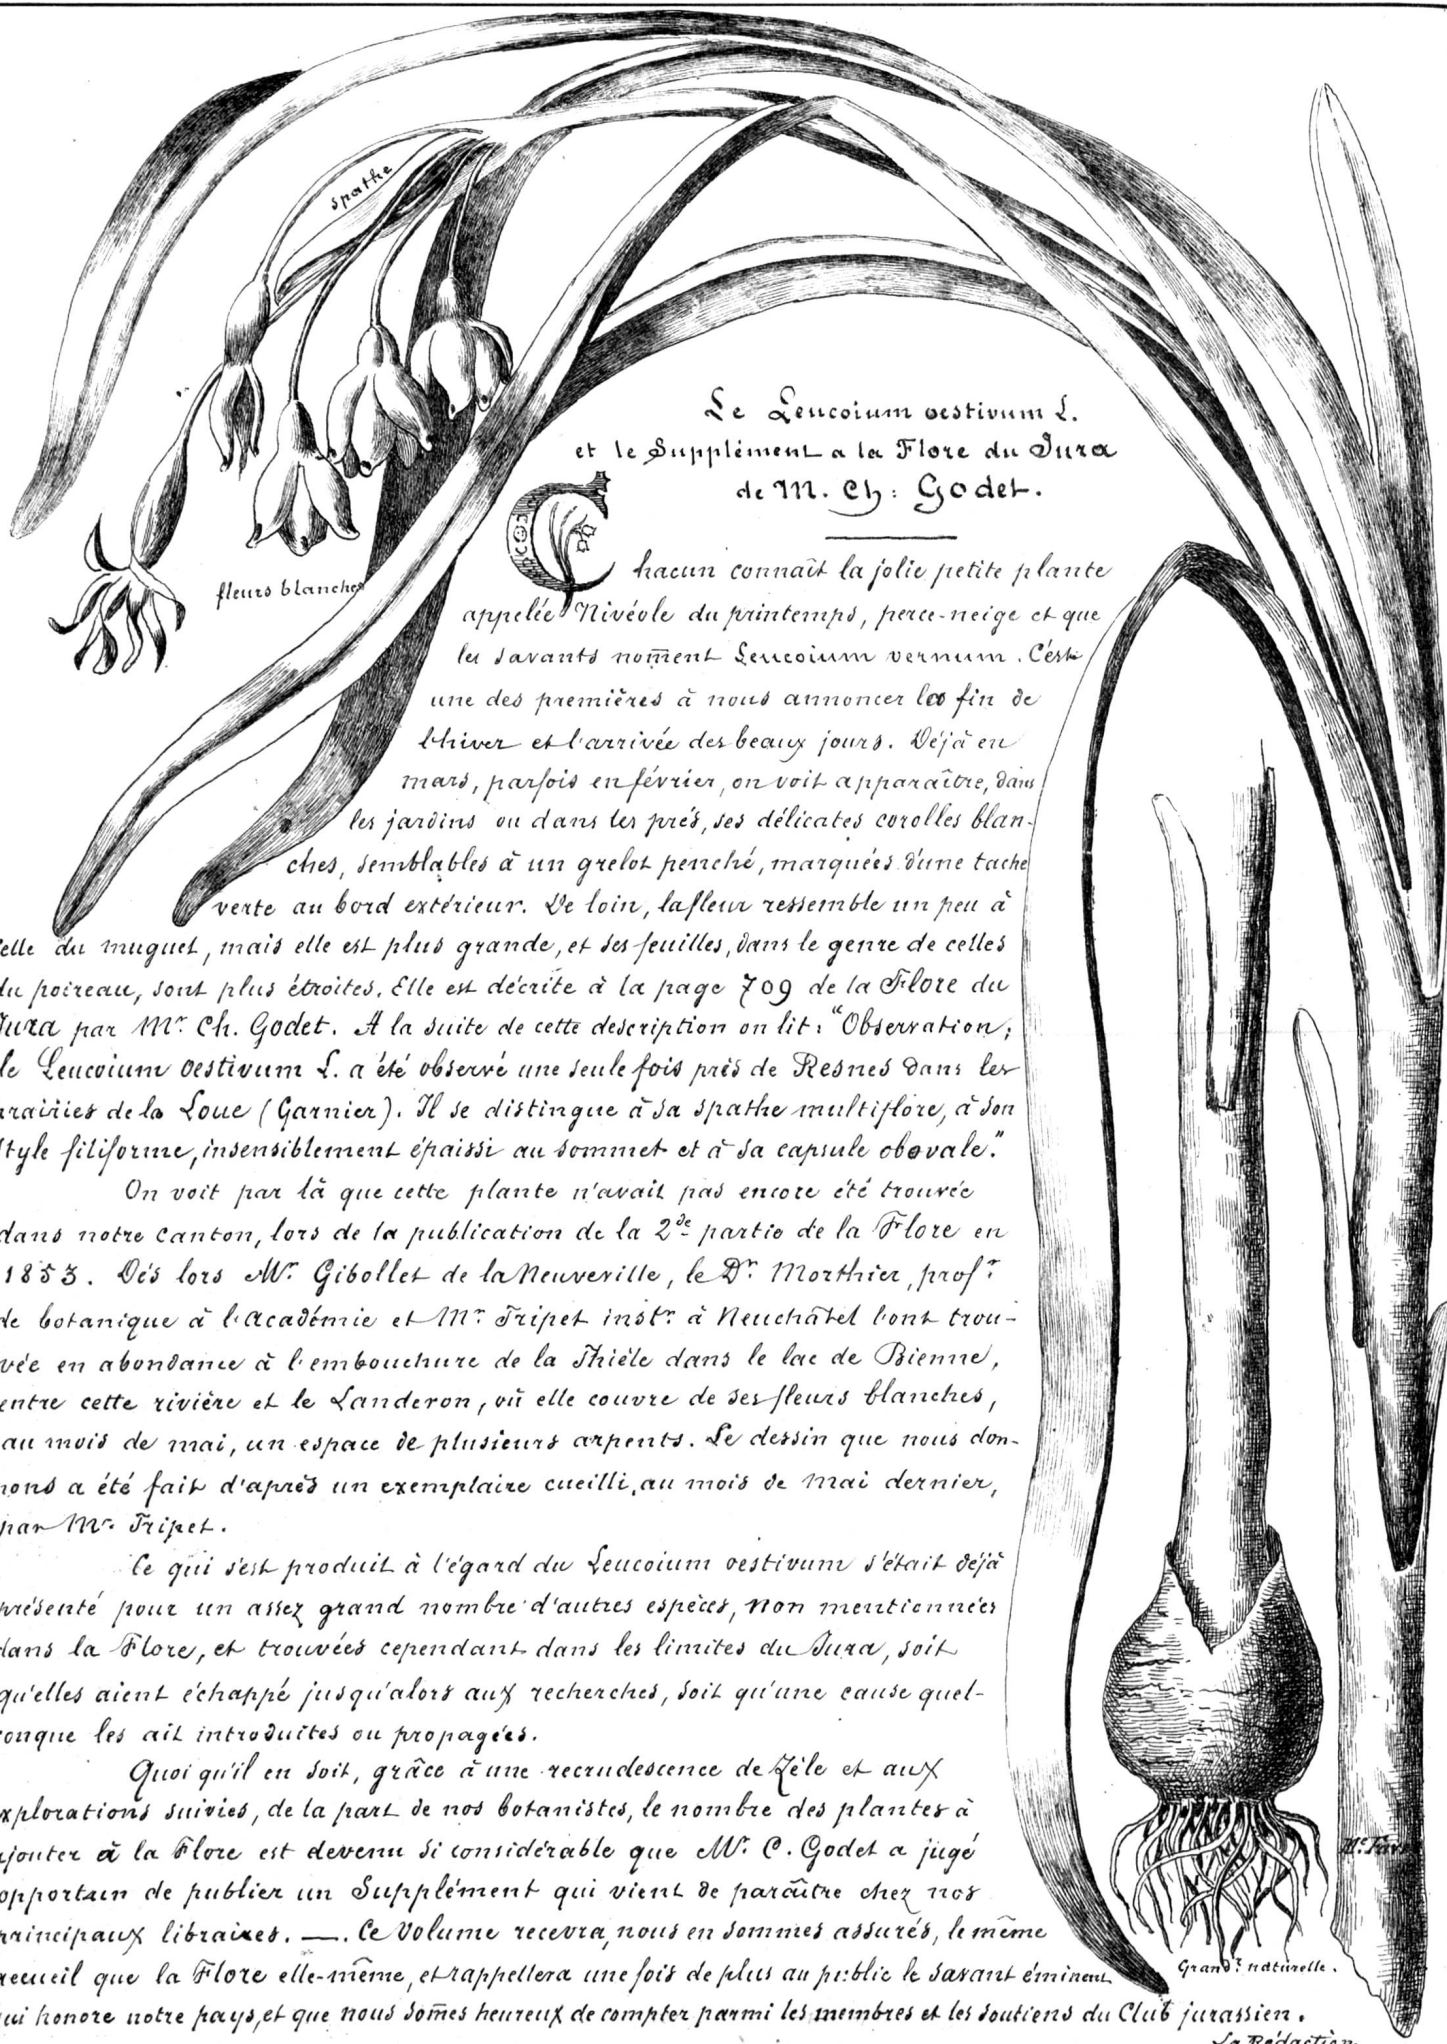 spathe
fleurs blanches
Le Leucoium œstivum L.
et le Supplément a la Flore du Jura
de M. Ch: Godet.
Chacun connaît la jolie petite plante
appelée Nivéole du printemps, perce-neige et que
les savants nom̅ent Leucoium vernum. C'est
une des premières à nous annoncer la fin de
l'hiver et l'arrivée des beaux jours. Déjà en
mars, parfois en février, on voit apparaître, dans
les jardins ou dans les prés, ses délicates corolles blan-
ches, semblables à un grelot penché, marquées d'une tache
verte au bord extérieur. De loin, la fleur ressemble un peu à
celle du muguet, mais elle est plus grande, et ses feuilles, dans le genre de celles
du poireau, sont plus étroites. Elle est décrite à la page 709 de la Flore du
Jura par Mr. Ch. Godet. A la suite de cette description on lit: "Observation;
le Leucoium œstivum L. a été observé une seule fois près de Resnes dans les
prairies de la Loue (Garnier). Il se distingue à sa spathe multiflore, à son
style filiforme, insensiblement épaissi au sommet et à sa capsule obovale."
On voit par là que cette plante n'avait pas encore été trouvée
dans notre canton, lors de la publication de la 2de partie de la Flore en
1853. Dès lors Mr. Gibollet de la Neuveville, le Dr. Morthier, profr.
de botanique à l'académie et Mr. Tripet instr. à Neuchâtel l'ont trou-
vée en abondance à l'embouchure de la Thièle dans le lac de Bienne,
entre cette rivière et le Landeron, où elle couvre de ses fleurs blanches,
au mois de mai, un espace de plusieurs arpents. Le dessin que nous don-
nons a été fait d'après un exemplaire cueilli, au mois de mai dernier,
par Mr. Tripet.
Ce qui s'est produit à l'égard du Leucoium œstivum s'était déjà
présenté pour un assez grand nombre d'autres espèces, non mentionnées
dans la Flore, et trouvées cependant dans les limites du Jura, soit
qu'elles aient échappé jusqu'alors aux recherches, soit qu'une cause quel-
conque les ait introduites ou propagées.
Quoi qu'il en soit, grâce à une recrudescence de zèle et aux
explorations suivies, de la part de nos botanistes, le nombre des plantes à
ajouter à la Flore est devenu si considérable que Mr. C. Godet a jugé
opportun de publier un Supplément qui vient de paraître chez nos
principaux libraires. —. Ce volume recevra, nous en sommes assurés, le même
accueil que la Flore elle-même, et rappellera une fois de plus au public le savant éminent
qui honore notre pays, et que nous som̅es heureux de compter parmi les membres et les soutiens du Club jurassien.
Grandr. naturelle.
La Rédaction